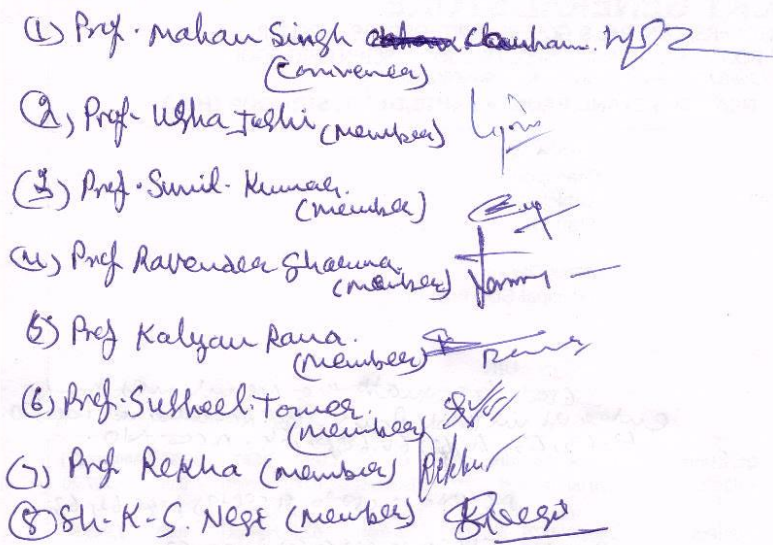 (1) Prof. Mahan Singh Chauhan.
(Convener)
(2) Prof. Usha Joshi (member)
(3) Prof. Sunil. Kumar.
(member)
(4) Prof Ravender Sharma.
(member)
(5) Prof Kalyan Rana.
(member) Rana
(6) Prof. Susheel. Tomer.
(member)
(7) Prof Rekha (member) Rekha
(8) Sh. K-S. Negi (member) Negi